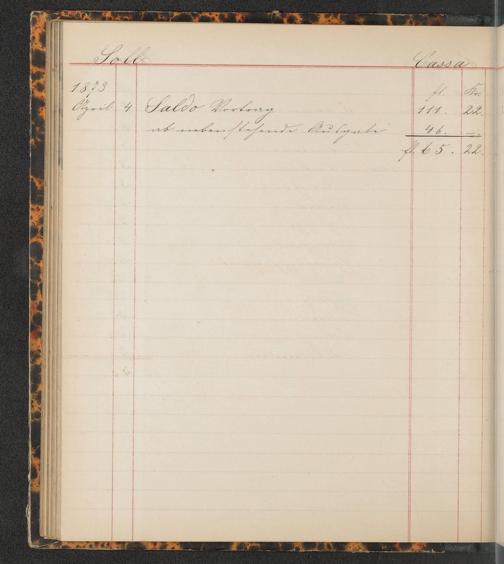 Soll Cassa
1873 fl. Kr.
April 4. Saldo Vortrag 111. 22.
ab nebenstehende Ausgabe 46. —
fl. 65. 22.